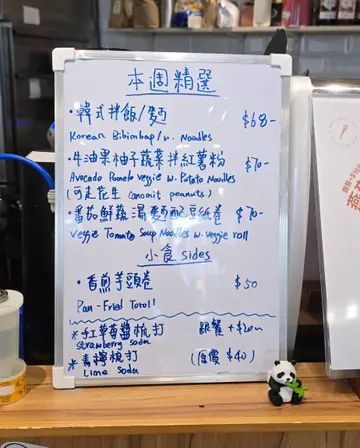 本週精選
·韓式拌飯/麵 $68-
Korean Bibimbap/w. Noodles
·牛油果柚子蔬菜拌紅薯粉 $70-
Avocado Pomelo veggie w. Potato Noodles
(可走花生 can omit peanuts)
·番茄鮮蔬湯麵配豆紙卷 $70-
Veggie Tomato Soup Noodles w. veggie roll
小食 sides
·香煎芋頭卷 $50
Pan-Fried Taroll
*士多啤梨梳打
Strawberry Soda
*青檸梳打 (原價 $40)
Lime Soda